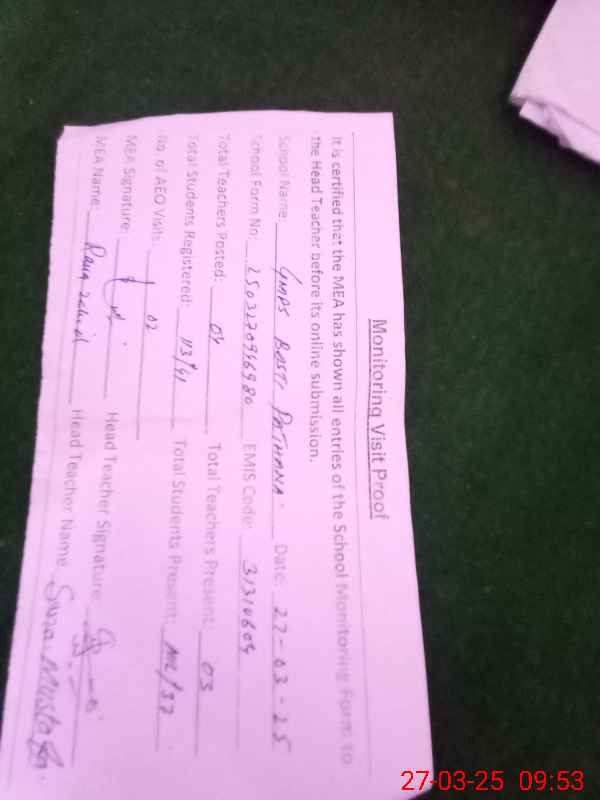 Monitoring Visit Proof
It is certified that the MEA has shown all entries of the School Monitoring Form to
the Head Teacher before its online submission.
School Name: GMPS BASTI PATHANA Date: 27-03-25
School Form No: 2503270946980 EMIS Code: 31310609
Total Teachers Posted: 04 Total Teachers Present: 03
Total Students Registered: 113/41 Total Students Present: /37
No. of AEO Visits: 02
MEA Signature: Head Teacher Signature:
MEA Name: Rana Zahid Head Teacher Name: Mustafa
27-03-25 09:53